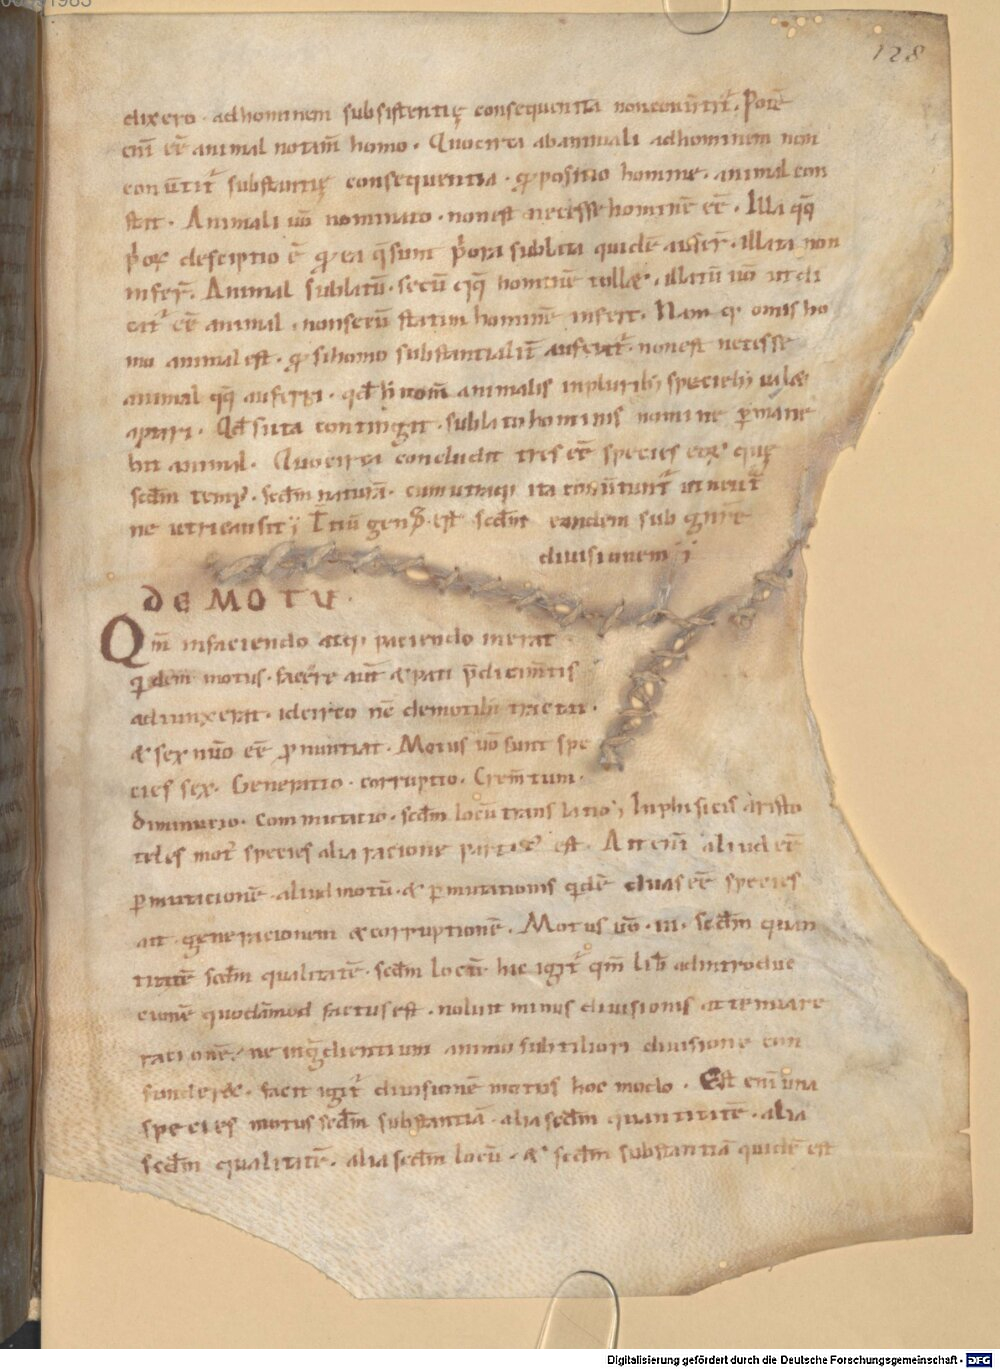 128
dixero · ad hominem subsistentię consequentia non conūtit᷑. Potē
eni ēē animal n̄ tam̄ homo. Quocirca ab animali ad hominem non
con ūtit᷑ substantię consequentia · p̄posito homine · animal con
stat. Animali uō nominato · non est necesse hominē ēē. Illa qq̄
descriptio ē q̄ ea q̄ sunt p̄ora sublata quidē aufer̄ · illata non
infer̄. Animal sublatū · secū qq̄ hominē tollꝫ, illatū uō ut di
cat᷑ ēē animal · non secū statim hominē infert. Nam q omis ho
mo animal est · si homo substantialit̄ aufertur · non est necesse
animal qq̄ auferri · nom̄ animalis in pluribꝫ speciebꝫ ualꝫ
aptari. Qđ si ita contingit · sublato hominis nomine pmane
bit animal. Quocirca concludit tres ēē species eoꝝ quę
scđm temp᷒ · scđm naturā · cum utraqꝫ ita conūtunt᷑ ut neut̄
ne utri causa sit; est scđm eandem sub genere
diuisionem;
DE MOTU ·
Qm̄ in faciendo atqꝫ paciendo inerat
qdem motus · facere aut̄ & pati
adiunxerat · idcirco nē de motibꝫ tractat ·
& sex nūo ēē pnuntiat. Motus uō sunt spe
cies sex. Generatio · corruptio. Crem̄tum ·
Diminutio. Commutatio · scđm locū translatio; In phisicis aristo
teles mot᷒ species alia racione partit᷒ est. Ait eni aliud ēē
pmutacionē · aliud motū · & pmutationis qdē duas ēē species
ait generacionem & corruptionē. Motus uō · iii · scđm quan
titatē scđm qualitatē · scđm locū · hic igit᷑ qm̄ lib̄ ad introduc
cionē quodāmod factus est · noluit minus diuisionis attenuare
racionē; ne ingredientium animo subtiliori diuisione con
funderꝫ · facit igit᷑ diuisionē motus hoc modo. Est eni una
species motus scđm substantiā · alia scđm quantitatē · alia
scđm qualitatē · alia scđm locū · & scđm substantiā quidē est
Digitalisierung gefördert durch die Deutsche Forschungsgemeinschaft - DFG